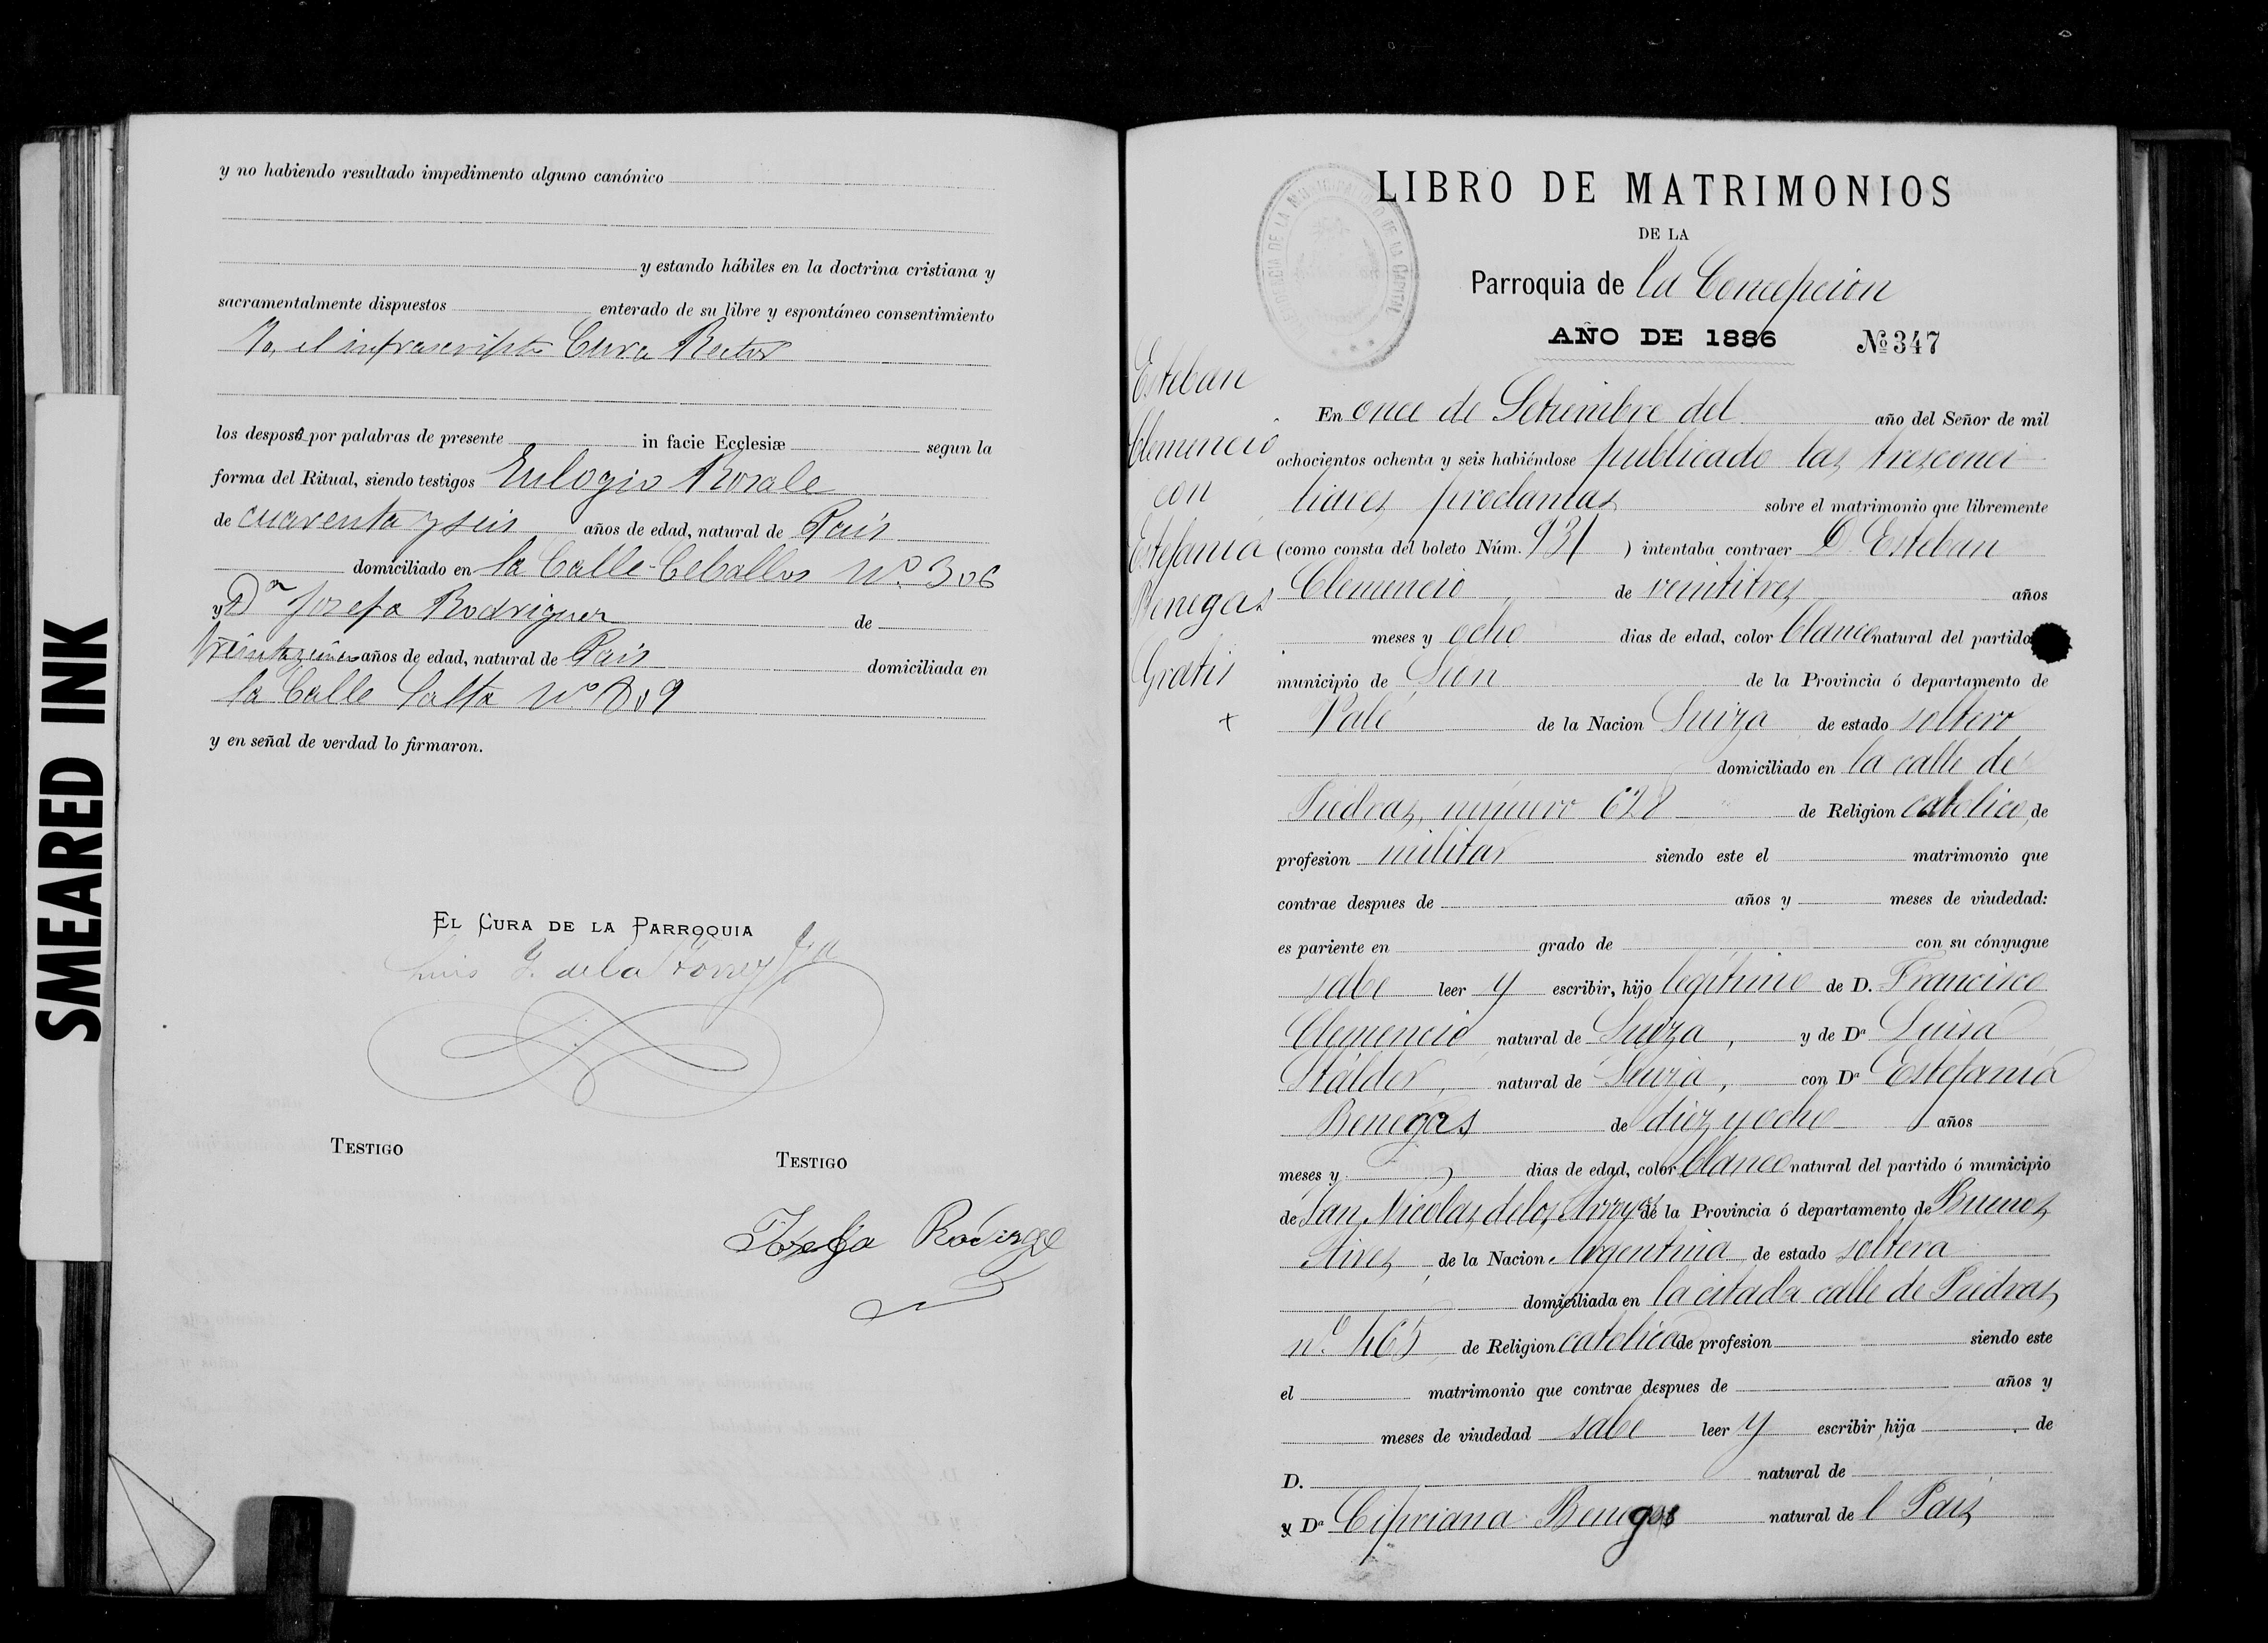 SMEARED INK
y no habiendo resultado impedimento alguno canónico
y estando hábiles en la doctrina cristiana y
sacramentalmente dispuestos enterado de su libre y espontáneo consentimiento
Yo, el infrascripto Cura Rector
los desposé por palabras de presente in facie Ecclesiæ segun la
forma del Ritual, siendo testigos Eulogio Rosale
de cuarenta y seis años de edad, natural de Pais
domiciliado en la Calle Ceballos Nº 306
y Dª Josefa Rodriguez de
años de edad, natural de Pais domiciliada en
la Calle Salta Nº 809
y en señal de verdad lo firmaron.
EL CURA DE LA PARROQUIA
Luis de la Torre y
TESTIGO TESTIGO
Josefa
LIBRO DE MATRIMONIOS
DE LA
Parroquia de la Concepcion
AÑO DE 1886 Nº 347
Esteban
Clemencio
con
Estefania
Benegas
Gratis
En once de Setiembre del año del Señor de mil
ochocientos ochenta y seis habiéndose publicado las tres conci
liares proclamas sobre el matrimonio que libremente
(como consta del boleto Núm. 931 ) intentaba contraer D. Esteban
Clemencio de veintitres años
meses y ocho dias de edad, color blanco natural del partido
municipio de Sion de la Provincia ó departamento de
Valé de la Nacion Suiza de estado soltero
domiciliado en la calle de
Piedras, número 628 de Religion catolica, de
profesion militar siendo este el matrimonio que
contrae despues de años y meses de viudedad:
es pariente en grado de con su cónyugue
sabe leer y escribir, hijo legítimo de D. Francisco
Clemencio natural de Suiza, y de Dª Luisa
Stálder, natural de Suiza, con Dª Estefania
Benegas de diez y ocho años
meses y dias de edad, color blanco natural del partido ó municipio
de San Nicolas de los Arroyos de la Provincia ó departamento de Buenos
Aires de la Nacion Argentina de estado soltera
domiciliada en la citada calle de Piedras
nº 465 de Religion catolica de profesion siendo este
el matrimonio que contrae despues de años y
meses de viudedad sabe leer y escribir, hija de
D. natural de
y Dª Cipriana Benegas natural de l Pais